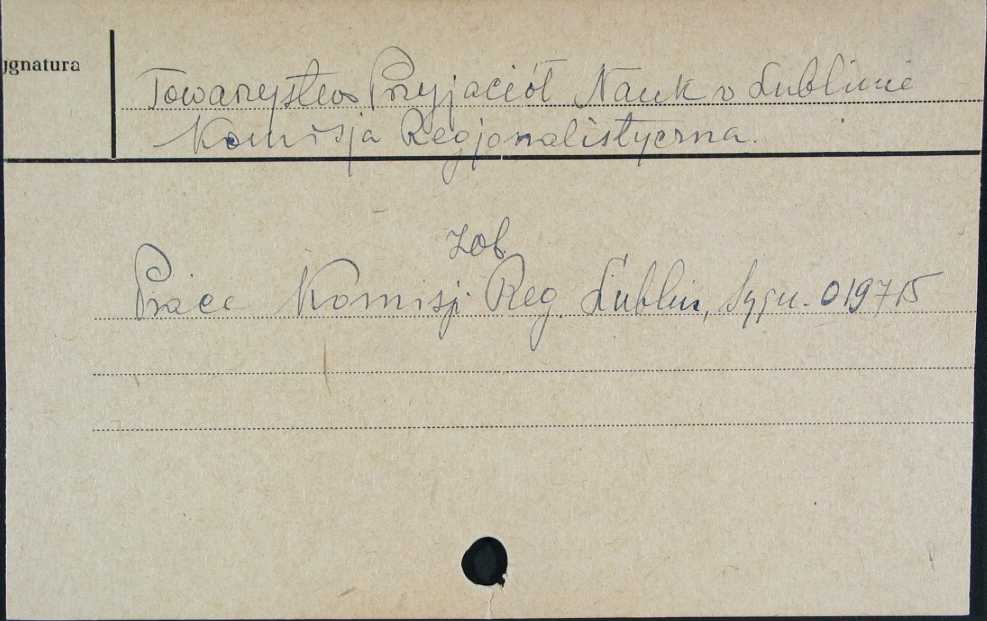 ygnatura
Towarzystwo Przyjaciół Nauk w Lublinie
Komisja Regjonalistyczna.
zob.
Prace Komisji Reg. Lublin, Sygn. 019715